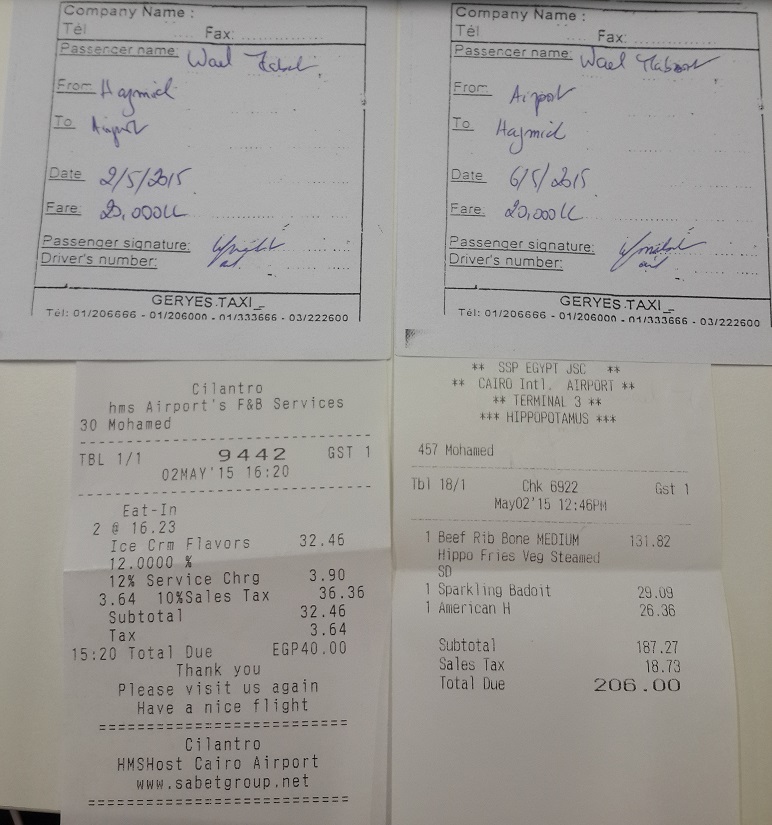 Company Name :
Tèl Fax:
Passencer name: Wael
From Haymid
To Airport
Date 2/5/2015
Fare: 20,000LL
Passenger signature:
Driver's number:
GERYES.TAXI_
Tèl: 01/206666 - 01/206000 - 01/333666 - 03/222600
Company Name :
Tèl Fax:
Passencer name: Wael
From Airport
To Haymid
Date 6/5/2015
Fare: 20,000LL
Passenger signature:
Driver's number:
GERYES.TAXI_
Tèl: 01/206666 - 01/206000 - 01/333666 - 03/222600
Cilantro
hms Airport's F&B Services
30 Mohamed
TBL 1/1 9442 GST 1
02MAY'15 16:20
Eat-In
2 @ 16.23
Ice Crm Flavors 32.46
12.0000 %
12% Service Chrg 3.90
3.64 10%Sales Tax 36.36
Subtotal 32.46
Tax 3.64
15:20 Total Due EGP40.00
Thank you
Please visit us again
Have a nice flight
Cilantro
HMSHost Cairo Airport
www.sabetgroup.net
** SSP EGYPT JSC **
** CAIRO Intl. AIRPORT **
** TERMINAL 3 **
*** HIPPOPOTAMUS ***
457 Mohamed
Tbl 18/1 Chk 6922 Gst 1
May02'15 12:46PM
1 Beef Rib Bone MEDIUM 131.82
Hippo Fries Veg Steamed
SD
1 Sparkling Badoit 29.09
1 American H 26.36
Subtotal 187.27
Sales Tax 18.73
Total Due 206.00